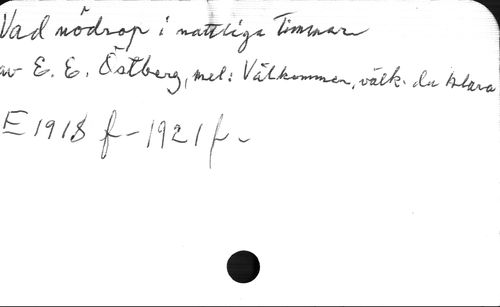 Vad nödrop i nattliga timmar
av E. E. Östberg, mel: Välkommen, välk. du klara
E 1918 f - 1921 f -